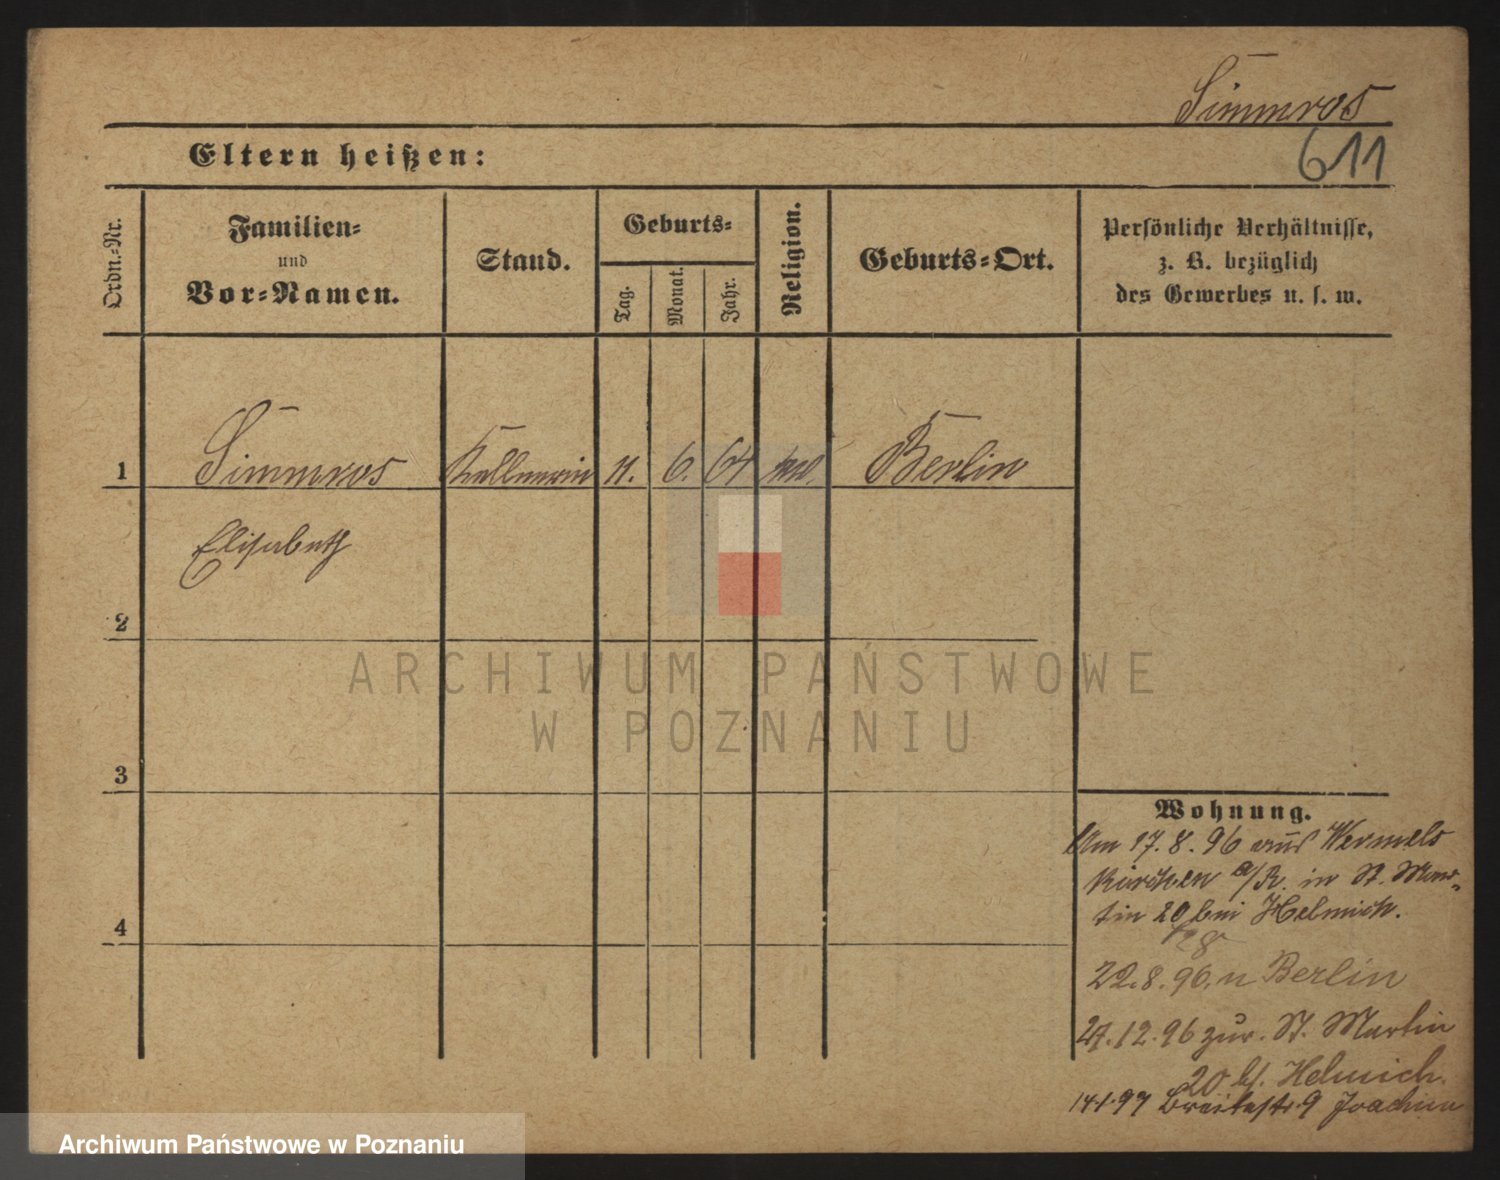 Simmros
611
Eltern heißen:
Ordn.-Nr.
Familien-
und
Vor-Namen.
Stand.
Geburts-
Tag.
Monat.
Jahr.
Religion.
Geburts-Ort.
Persönliche Verhältnisse,
z. B. bezüglich
des Gewerbes u. s. w.
1 Simmros Kellnerin 11. 6. 64 Berlin
Elisabeth
2
3
4
Wohnung.
Am 17. 8. 96 aus Wermels
kirchen a/R. in St. Mar-
tin 20 bei Helmich.
22. 8. 96. n Berlin
27. 12. 96 zur. St. Martin
20 b/. Helmich.
14.1.97 Breitestr. 9 Joachim
ARCHIWUM PAŃSTWOWE
W POZNANIU
Archiwum Państwowe w Poznaniu